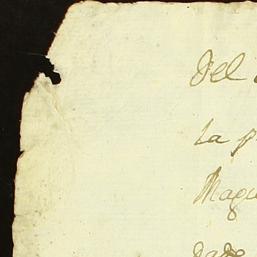 Del
la p
Magu
dade